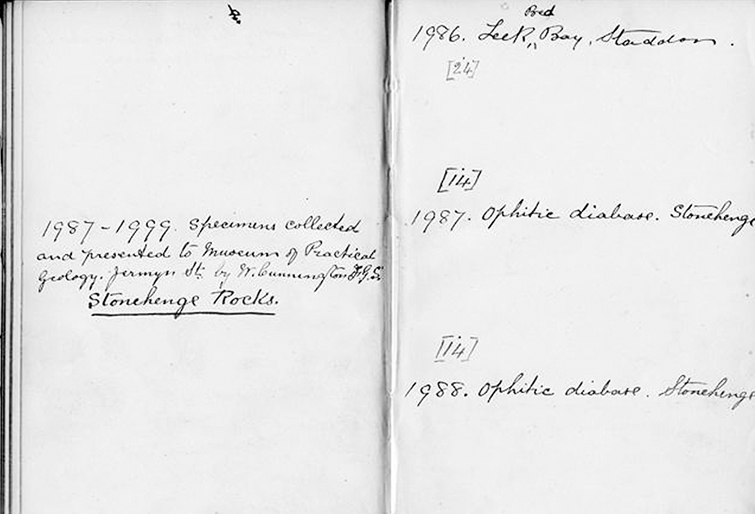 1987-1999. Specimens collected
and presented to Museum of Practical
Geology. Jermyn St. by W. Cunnington F.G.S.
Stonehenge Rocks.
1986. Bay, Staddon.
[24]
[14]
1987. Ophitic diabase. Stonehenge
[14]
1988. Ophitic diabase. Stonehenge